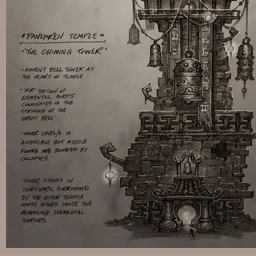 *PANDAREN TEMPLE*
"THE CHIMING TOWER"
- ANCIENT BELL TOWER AT
THE HEART OF TEMPLE
- 1ST SECTION OF
ELEMENTAL QUESTS
CULMINATES IN THE
OF THE
GREAT BELL
- INNER LEVEL IS
ACCESSIBLE BUT MIDDLE
FLOORS ARE BLOCKED BY
COLLAPSE
- TOWER STANDS IN
COURTYARD, SURROUNDED
BY THE OUTER TEMPLE
WHICH HOUSE THE
REMAINING ELEMENTAL
SHRINES